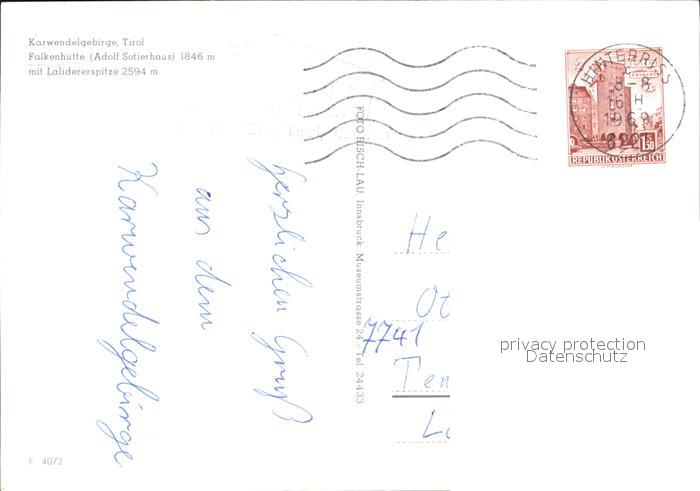 Karwendelgebirge, Tirol
Falkenhütte (Adolf Sotierhaus) 1846 m
mit Lalidererspitze 2594 m
herzlichen Gruß
aus dem
Karwendelgebirge
FOTO RISCH-LAU, Innsbruck, Museumstrasse 24 - Tel. 24433
HINTERRISS
8-8
16 H
1969
622
1.50
REPUBLIK ÖSTERREICH
He
Ot
7741
Ten
La
privacy protection
Datenschutz
F 4072